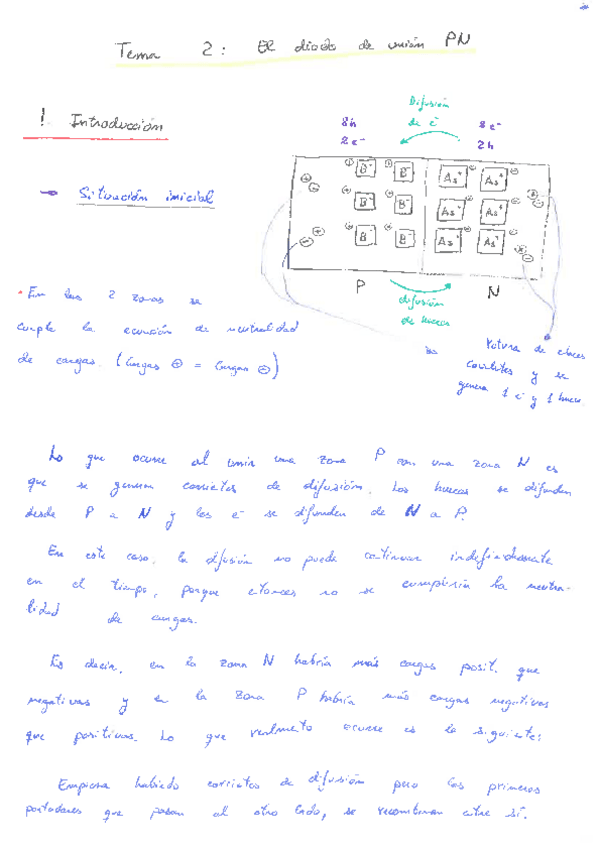 Tema 2: El diodo de unión PN
! Introducción
Difusión
de e⁻
8h
2e⁻
8e⁻
2h
→ Situación inicial
B⁻ B⁻ As⁺ As⁺
B⁻ B⁻ As⁺ As⁺
B⁻ B⁻ As⁺ As⁺
P N
difusión
de huecos
• En las 2 zonas se
cumple la ecuación de neutralidad
de cargas. (Cargas ⊕ = Cargas ⊖)
Rotura de enlaces
covalentes y se
genera 1 e⁻ y 1 hueco.
Lo que ocurre al unir una zona P con una zona N es
que se generan corrientes de difusión. Los huecos se difunden
desde P a N y los e⁻ se difunden de N a P.
En este caso, la difusión no puede continuar indefinidamente
en el tiempo, porque entonces no se cumpliría la neutra-
lidad de cargas.
Es decir, en la zona N habría más cargas posit. que
negativas y en la zona P habría más cargas negativas
que positivas. Lo que realmente ocurre es lo siguiente:
Empieza habiendo corrientes de difusión pero los primeros
portadores que pasan al otro lado, se recombinan entre sí.